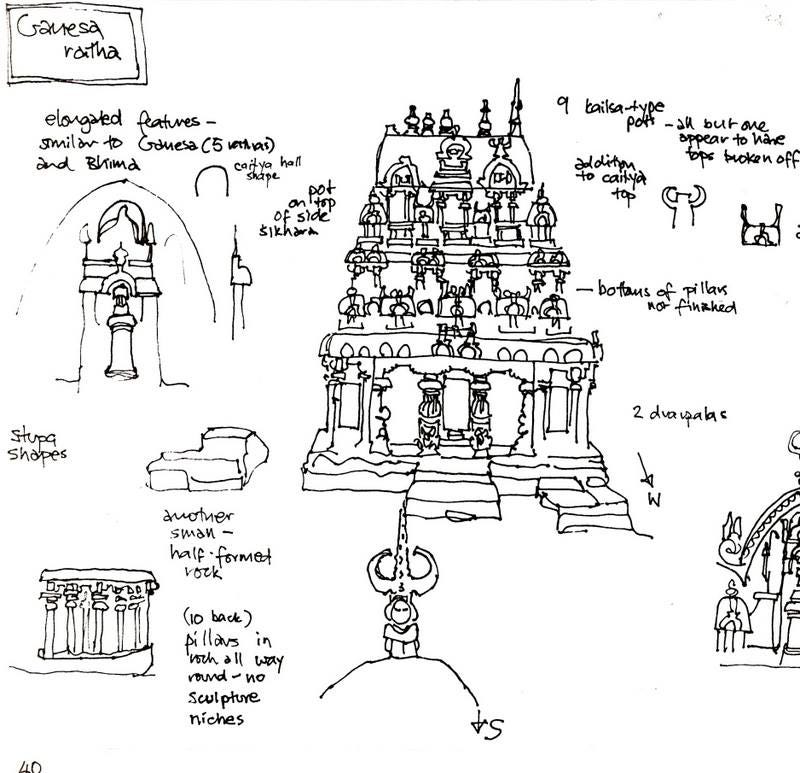 Ganesa
ratha
elongated features -
similar to Ganesa (5 rathas)
and Bhima
caitya hall
shape
pot
on top
of side
sikhara
9 kailsa-type
pots - all but one
appear to have
tops broken off
addition
to caitya
top
- bottoms of pillars
not finished
2 dvarpalas
W
stupa
shapes
another
small -
half-formed
rock
(10 back)
pillars in
rock all way
round - no
sculpture
niches
S
40